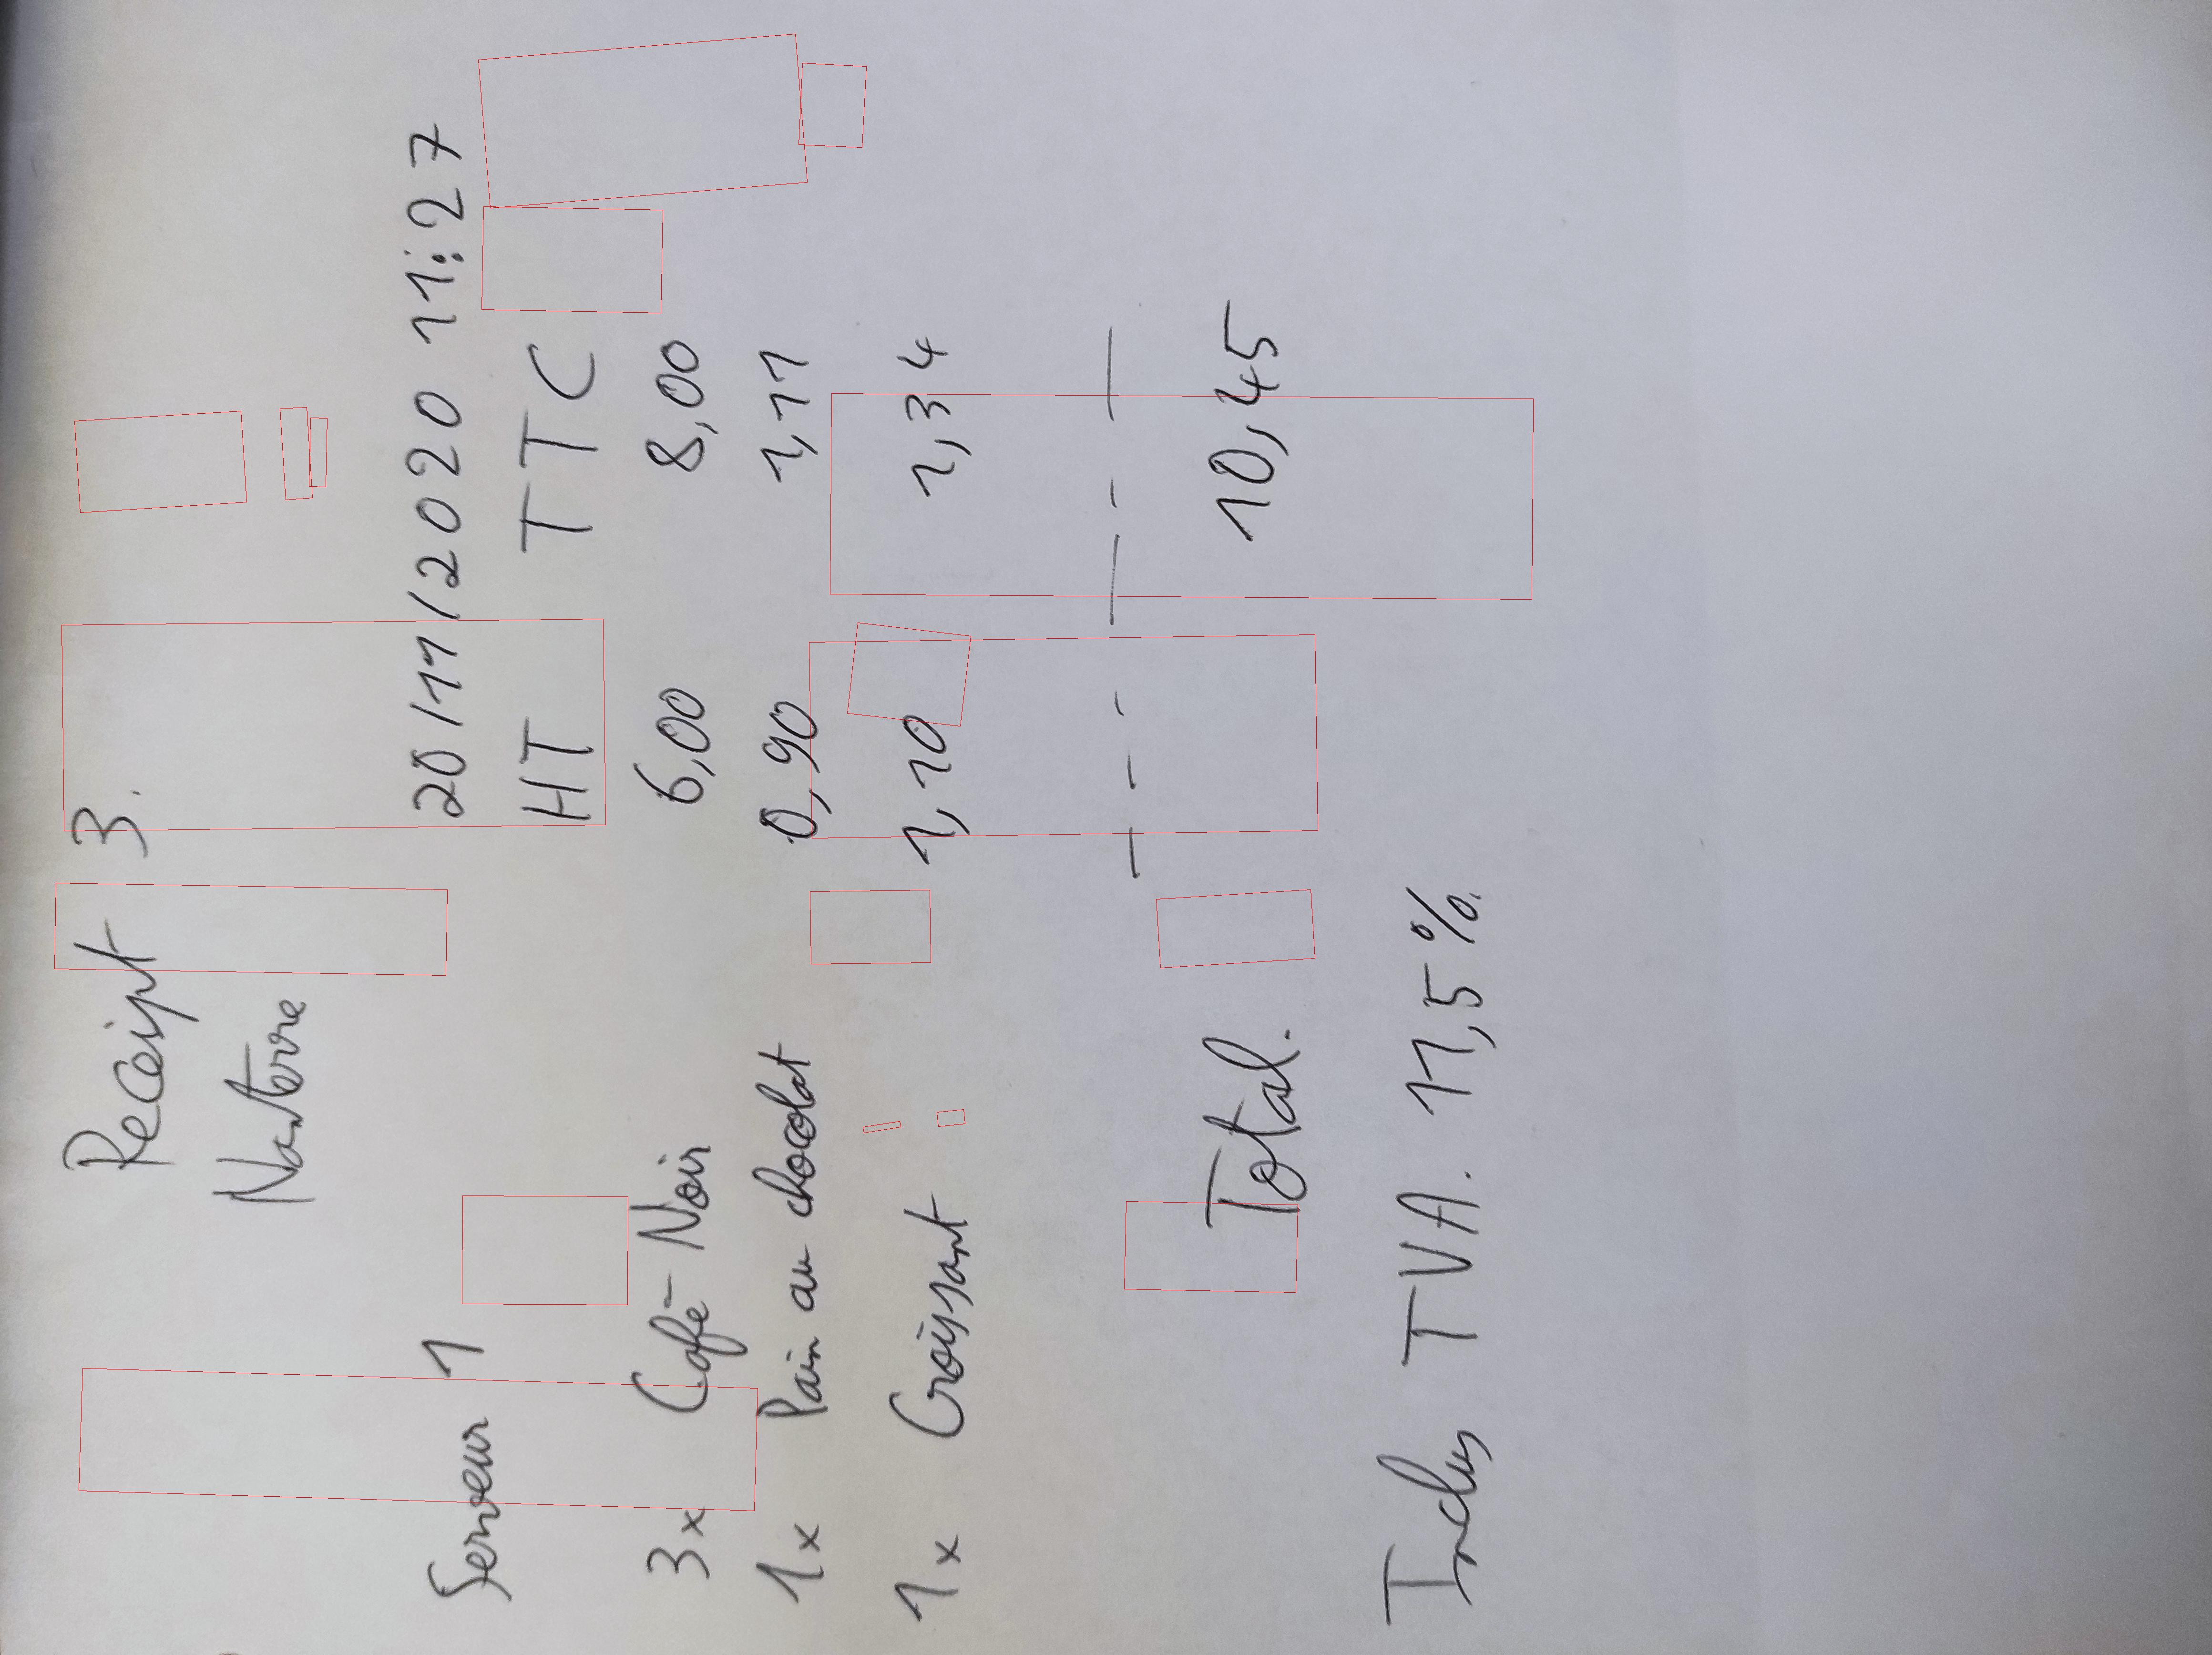 Receipt 3.
Nanterre
Serveur 1 20/11/2020 11:27
HT TTC
3x Café Noir 6,00 8,00
1x Pain au chocolat 0,90 1,11
1x Croissant 1,10 1,34
Total. 10,45
Inclus TVA. 11,5%.